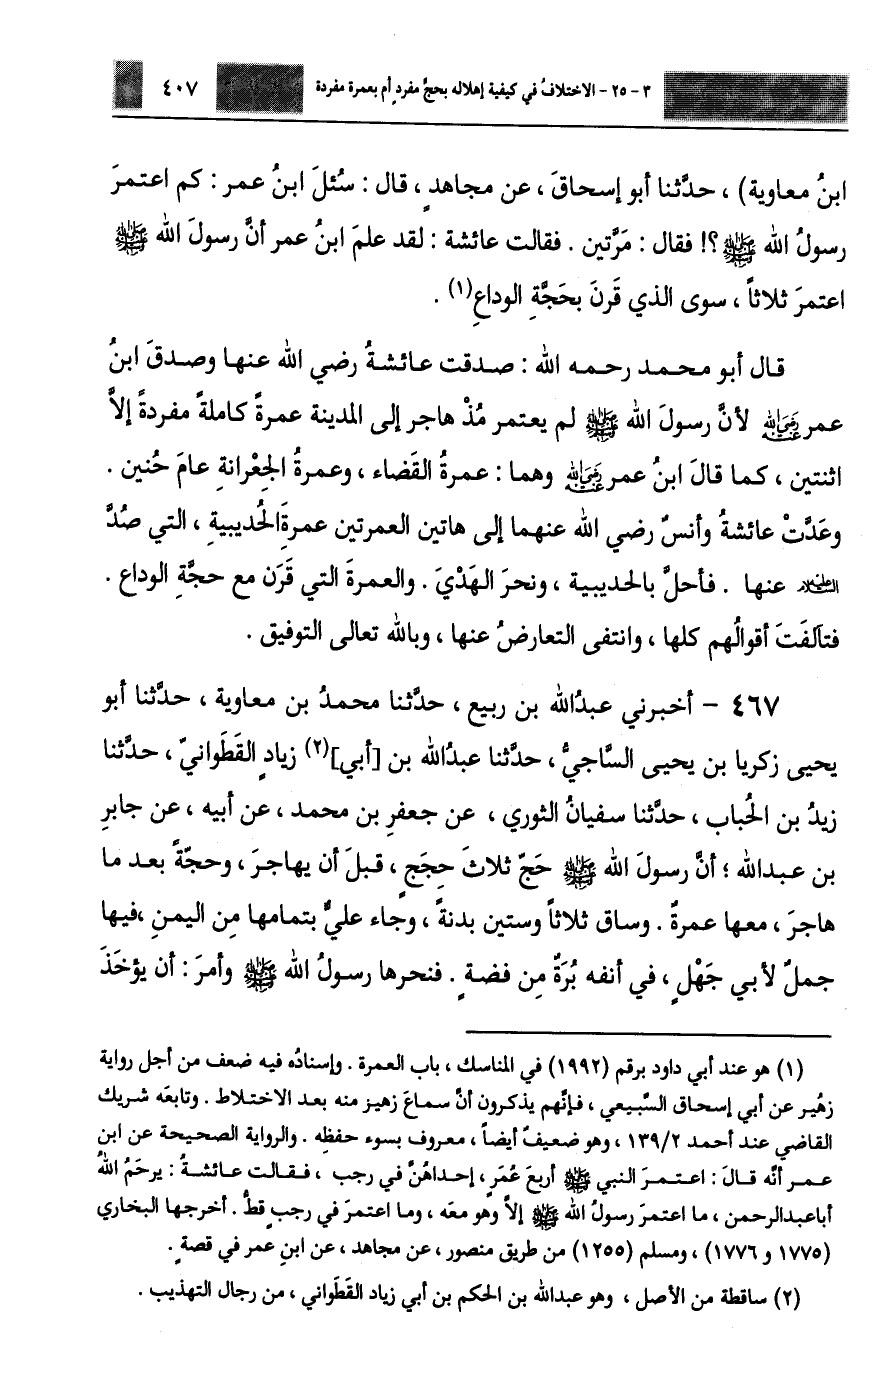 ٣ - ٢٥ - الاختلافُ في كيفية إهلاله بحجٍّ مفردٍ أم بعمرة مفردة ٤٠٧
ابنُ معاوية) ، حدَّثنا أبو إسحاقَ ، عن مجاهدٍ ، قال : سُئلَ ابنُ عمر : كم اعتمرَ
رسولُ الله ﷺ ؟! فقال : مَرَّتين . فقالت عائشة : لقد علمَ ابنُ عمر أنَّ رسولَ الله ﷺ
اعتمرَ ثلاثاً ، سوى الذي قَرنَ بحَجَّةِ الوداعِ(١) .
قال أبو محمد رحمه الله : صدقت عائشةُ رضي الله عنها وصدقَ ابنُ
عمر رضي الله عنه لأنَّ رسولَ الله ﷺ لم يعتمر مُذْ هاجر إلى المدينة عمرةً كاملةً مفردةً إلاَّ
اثنتين ، كما قالَ ابنُ عمر رضي الله عنه وهما : عمرةُ القَضاء ، وعمرةُ الجِعْرانةِ عامَ حُنين .
وعَدَّتْ عائشةُ وأنسٌ رضي الله عنهما إلى هاتين العمرتين عمرةَالحُديبيةِ ، التي صُدَّ
عليه السلام عنها . فأحلَّ بالحديبية ، ونحرَ الهَدْيَ . والعمرةَ التي قَرَن مع حجَّةِ الوداع .
فتآلفَتَ أقوالُهم كلها ، وانتفى التعارضُ عنها ، وبالله تعالى التوفيق .
٤٦٧ - أخبرني عبدُالله بن ربيع ، حدَّثنا محمدُ بن معاوية ، حدَّثنا أبو
يحيى زكريا بن يحيى السَّاجيُّ ، حدَّثنا عبدُالله بن [أبي](٢) زيادٍ القَطَوانيّ ، حدَّثنا
زيدُ بن الحُباب ، حدَّثنا سفيانُ الثوري ، عن جعفرِ بن محمد ، عن أبيه ، عن جابرِ
بن عبدالله ؛ أنَّ رسولَ الله ﷺ حَجَّ ثلاثَ حِجَجٍ ، قبلَ أن يهاجرَ ، وحجّةً بعد ما
هاجرَ ، معها عمرةٌ . وساق ثلاثاً وستين بدنةً ، وجاء عليٌّ بتمامها مِن اليمنِ ،فيها
جملٌ لأبي جَهْلٍ ، في أنفه بُرَةٌ مِن فضةٍ . فنحرها رسولُ الله ﷺ وأمرَ : أن يؤخَذَ
(١) هو عند أبي داود برقم (١٩٩٢) في المناسك ، باب العمرة . وإسنادُه فيه ضعف من أجل رواية
زهُير عن أبي إسحاق السَّبيعي ، فإنَّهم يذكرون أنَّ سماعَ زهيرٍ منه بعد الاختلاط . وتابعَه شريك
القاضي عند أحمد ١٣٩/٢ ، وهو ضعيفٌ أيضاً ، معروف بسوء حفظِه . والرواية الصحيحة عن ابن
عمر أنَّه قالَ : اعتمرَ النبي ﷺ أربعَ عُمَرٍ ، إحداهُنَّ في رجب ، فقالت عائشةُ : يرحَمُ اللهُ
أباعبدالرحمن ، ما اعتمرَ رسولُ الله ﷺ إلاَّ وهو معَه ، وما اعتمرَ في رجبٍ قطُّ . أخرجها البخاري
(١٧٧٥ و ١٧٧٦) ، ومسلم (١٢٥٥) من طريق منصور ، عن مجاهد ، عن ابنِ عمر في قصةٍ .
(٢) ساقطة من الأصل ، وهو عبدالله بن الحكم بن أبي زياد القَطَواني ، من رجال التهذيب .